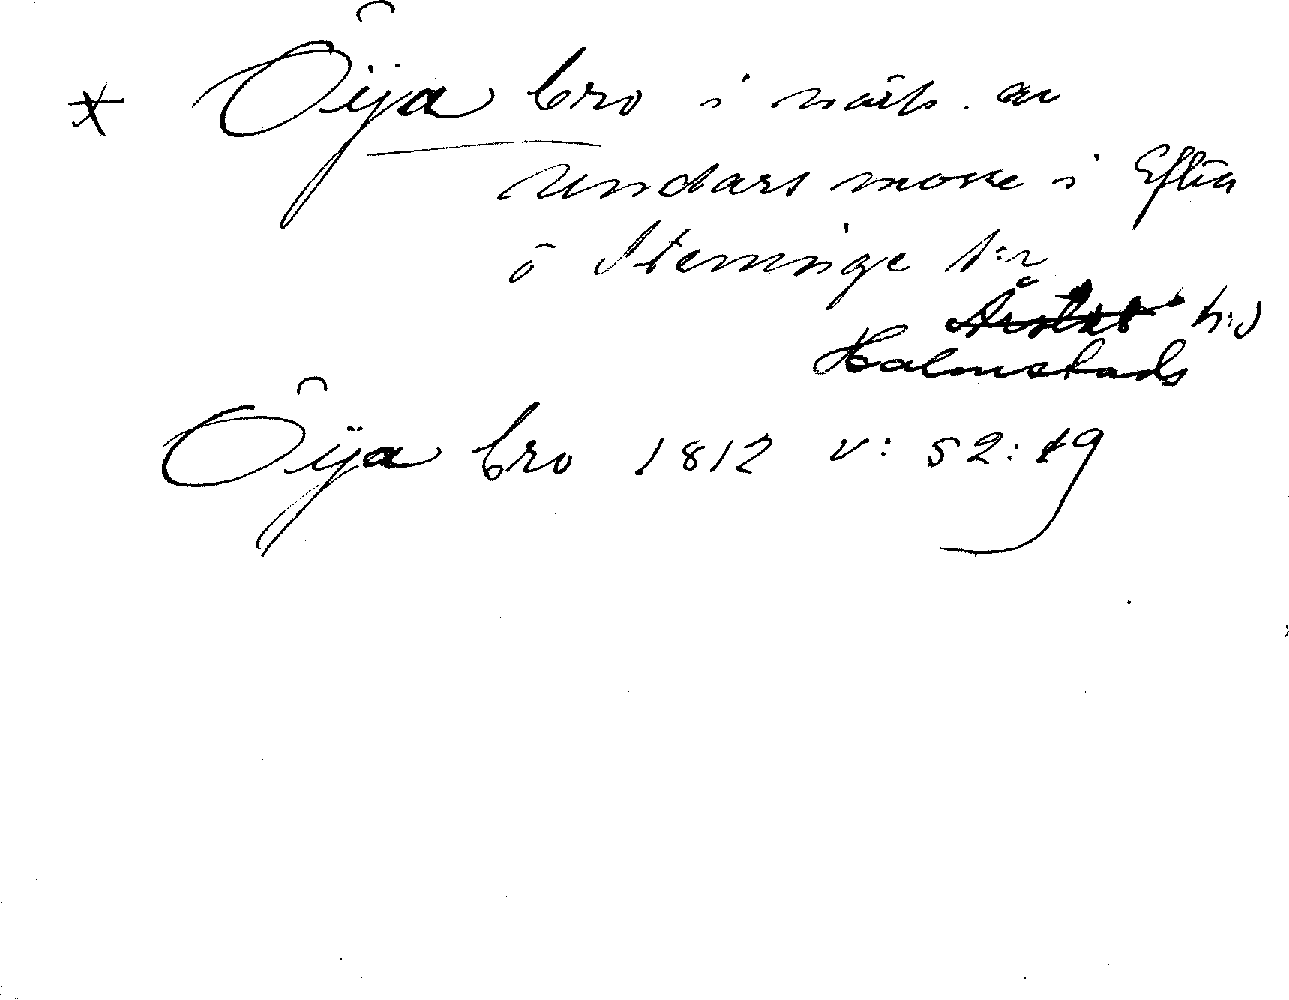 * Öija bro i närh. av
Undars mosse i Eftra
o Steninge s:r
Årstad h:d
Halmstads
Öija bro 1812 v: 52:19